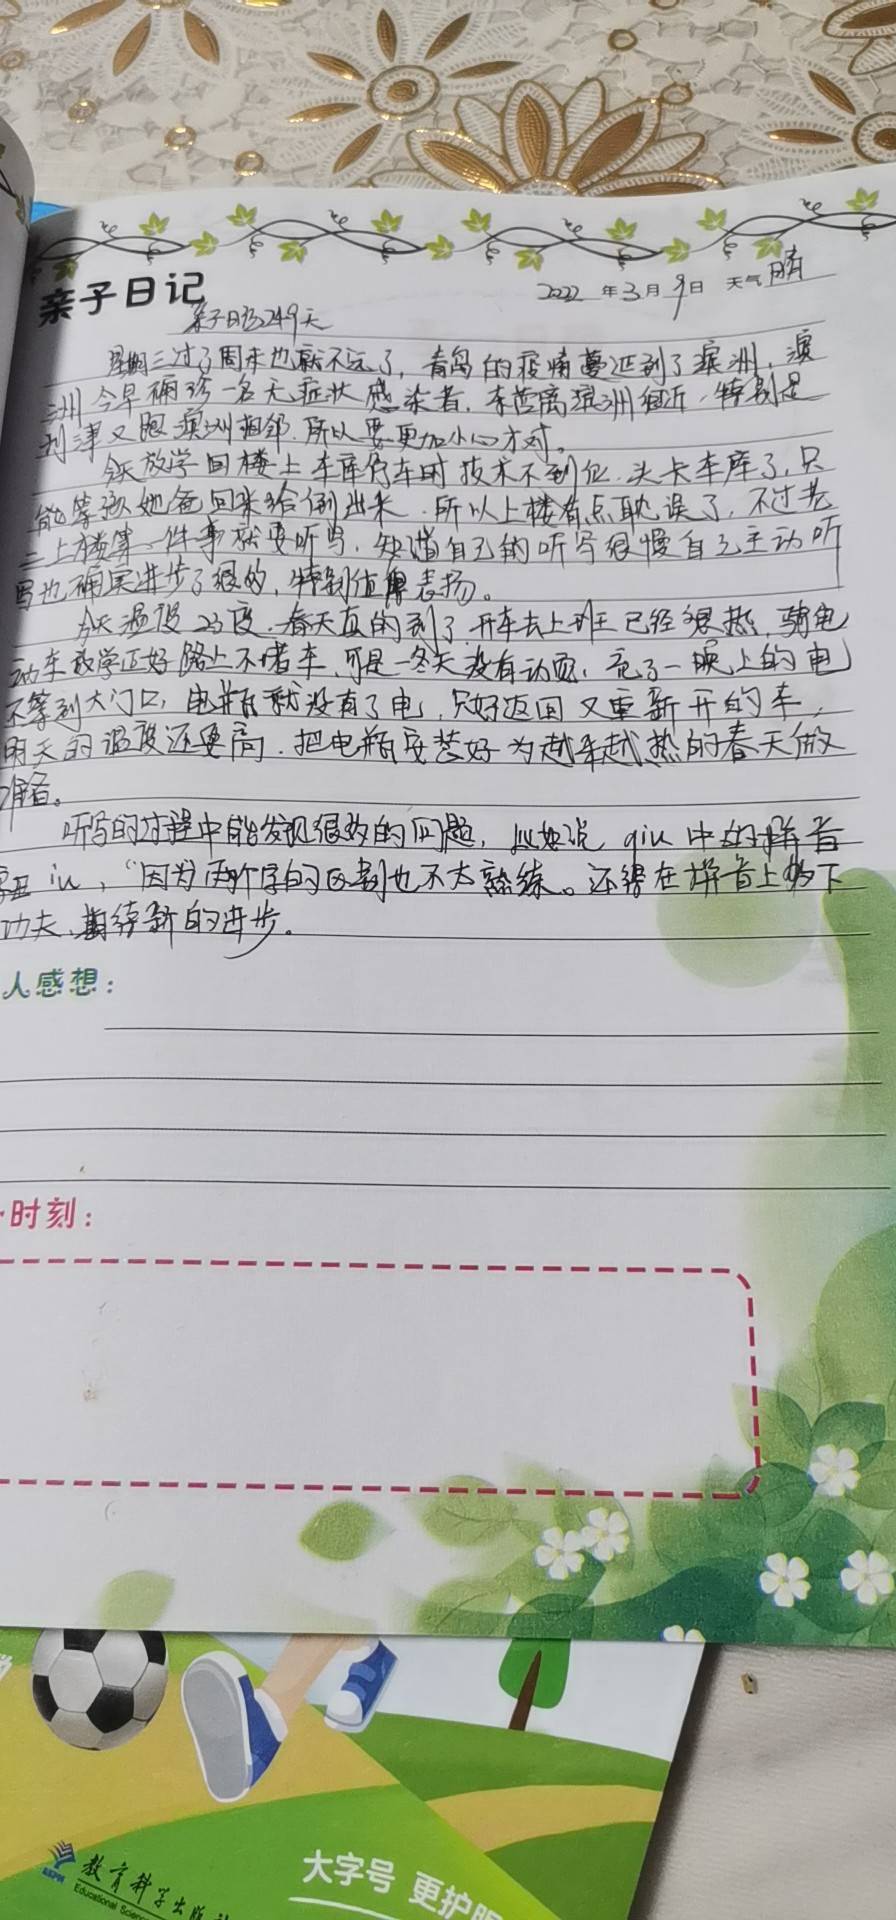 亲子日记
2022 年 3 月 9 日 天气 晴
亲子日记249天
星期三过了周末也就不远了，青岛的疫情蔓延到了滨洲，滨
洲今早确珍一名无症状感染者，东营离滨洲很近，特别是
利津又跟滨洲相邻，所以要更加小心才对。
今天放学回楼上车库停车时技术不到位，头卡车库了，只
能等孩她爸回来给倒出来，所以上楼有点耽误了，不过老
二上楼第一件事就要听写，知道自己的听写很慢自己主动听
写也确实进步了很的，特别值得表扬。
今天温度23度，春天真的到了，开车去上班已经很热，骑电
动车放学正好路上不堵车，可是一冬天没有动页，充了一晚上的电
不等到大门口，电瓶就没有了电，只好返回又重新开的车，
明天的温度还要高，把电瓶安装好为越来越热的春天做
准备。
听写的过程中能发现很多的问题，比如说 qiu 中的拼音
iu，因为两个字的区别也不太熟练。还得在拼音上多下
功夫，期待新的进步。
人感想：
时刻：
教育科学出版社
Educational Scienc
大字号 更护眼